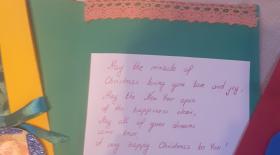 May the miracle of
Christmas bring you love and joy,
May the New Year open
all the happiness doors,
May all of your dreams
come true.
A very happy Christmas to You!